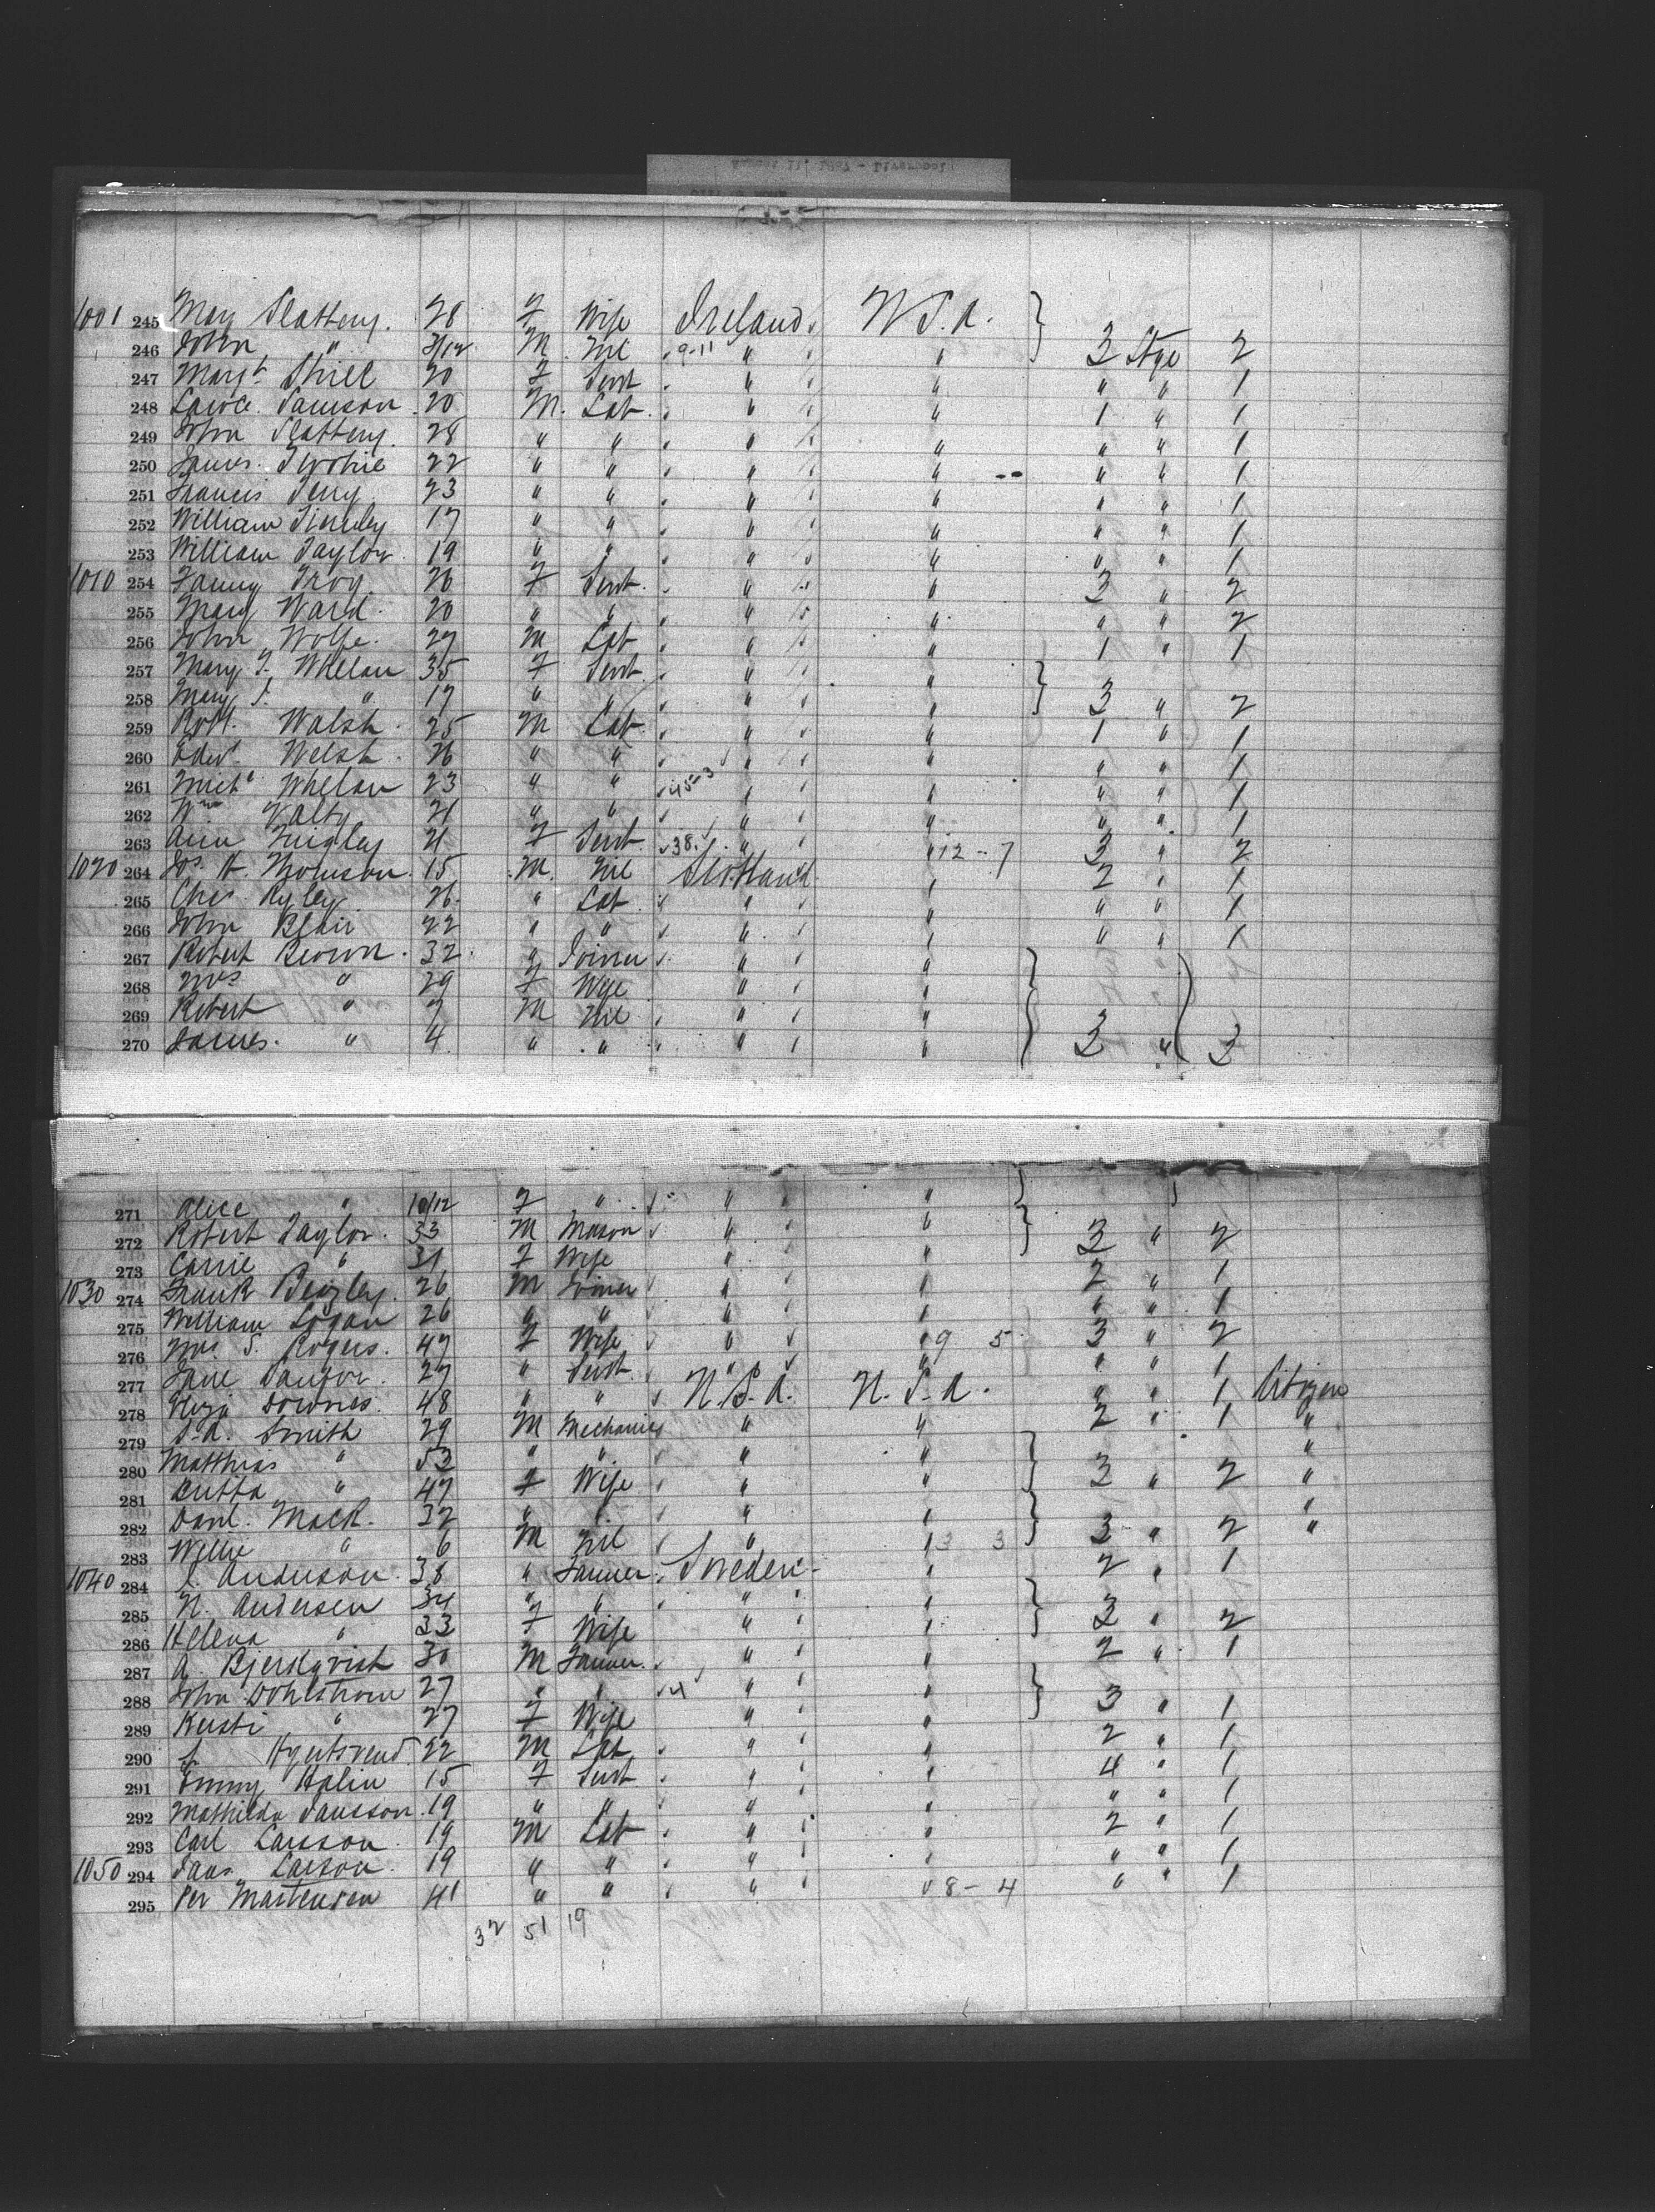 1001 245 Mary Slattery. 28 F Wife Ireland U.S.A.
246 John " 3/12 M Nil 9-11 " " 3 Stge 2
247 Margt 20 F Servt " " " " 1
248 20 M. Lab. " " 1 " 1
249 John Slattery. 28 " " " " " " 1
250 James 22 " " " " " " 1
251 Francis Terry 23 " " " " " " 1
252 William 17 " " " " " " 1
253 William Taylor 19 " " " " " " 1
1010 254 Fanny Troy. 26 F Servt. " " 3 " 2
255 Mary Ward. 20 " " " " " " 2
256 John Wolfe. 27 M Lab " " 1 " 1
257 Mary Whelan 35 F Servt. " "
258 Mary " 17 " " " " 3 " 2
259 Robt. Walsh. 25 M Lab. " " 1 " 1
260 Edwd Welsh. 26 " " " " " " 1
261 Michl Whelan 23 " " 45-3 " " " " 1
262 Wm 21 " " " " " " 1
263 Ann 21 F Servt 38 " " 12-7 3 " 2
1020 264 Jos. H. Thomson. 15 M. Nil Scotland " 2 " 1
265 Chs. Ryley 26 " Lab " " " " 1
266 John Blair 22 " " " " " " 1
267 Robert Brown. 32. " Joiner " "
268 Mrs " 29 F Wife " "
269 Robert " 7 M Nil " "
270 James. " 4. " " " " 3 " 3
271 Alice " 10/12 F " " "
272 Robert Taylor. 33 M Mason " " 3 " 2
273 Carrie " 31 F Wife " "
1030 274 Frank 26 M Joiner " " 2 " 1
275 William Logan 26 " " " " " " 1
276 Mrs. S. Rogers. 47 F Wife " " 9 5 3 " 2
277 Jane 27 " Servt. " " " " 1
278 Eliza Downes. 48 " " U.S.A. U.S.A. " " 1 Citizen
279 S.A. Smith 29 M Mechanic " " 2 " 1 "
280 Matthias " 53 " " " " "
281 " 47 F Wife " " 3 " 2 "
282 Mack. 32 " " " " "
283 Willie " 6 M Nil " " 3 3 3 " 2 "
1040 284 Anderson. 38 " Farmer. Sweden " 2 " 1
285 N. Andersen 34 " " " "
286 Helena " 33 F Wife " " 3 " 2
287 A. Bjerkqvist 30 M Farmer. " " 2 " 1
288 John Dohlstrom 27 " " 4 " "
289 Kersti " 27 F Wife " " 3 " 1
290 22 M Lab " " 2 " 1
291 Emmy Holin 15 F Servt. " " 4 " 1
292 Mathilda Jansson. 19 " " " " " " 1
293 Carl Larsson. 19 M Lab " " 2 " 1
1050 294 Larson. 19 " " " " " " 1
295 Per Martensen 41 " " " " 8-4 " " 1
32 51 19